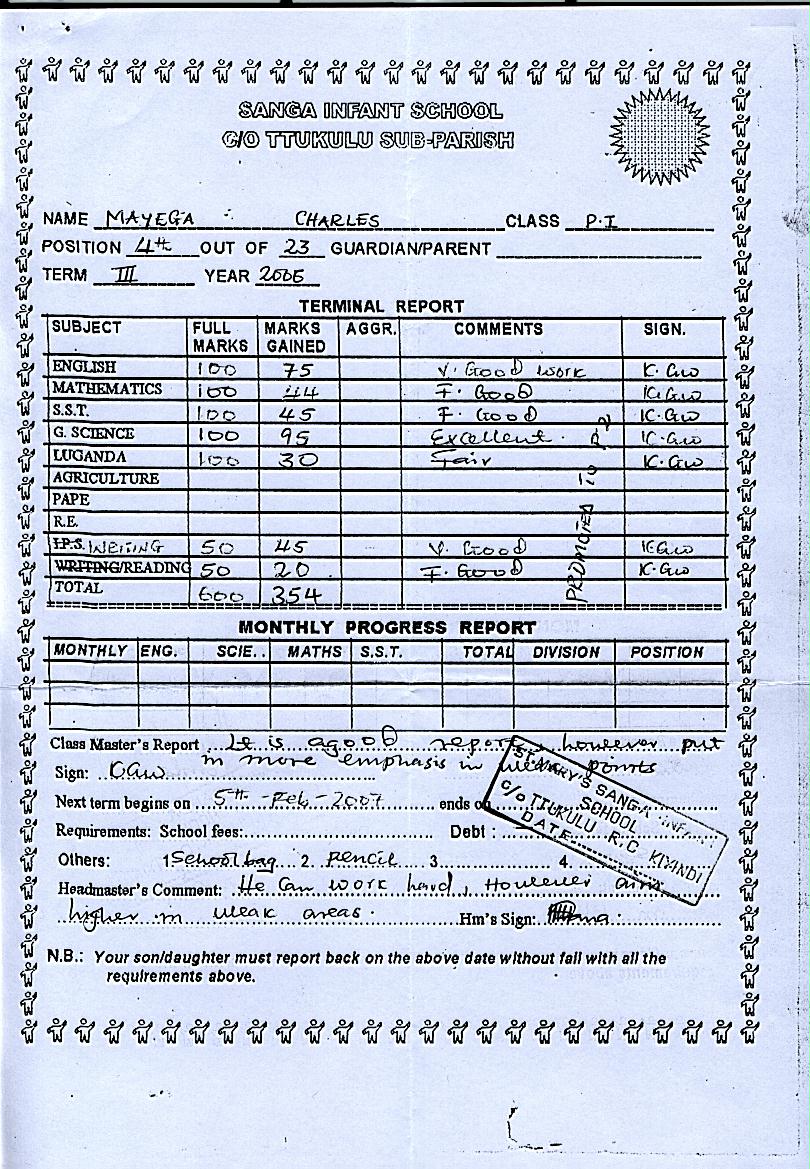 SANGA INFANT SCHOOL
C/O TTUKULU SUB-PARISH
NAME MAYEGA CHARLES CLASS P.I
POSITION 4th OUT OF 23 GUARDIAN/PARENT
TERM III YEAR 2006
TERMINAL REPORT
SUBJECT FULL MARKS MARKS GAINED AGGR. COMMENTS SIGN.
ENGLISH 100 75 V. Good work K.Gw
MATHEMATICS 100 44 F. Good K.Gw
S.S.T. 100 45 F. Good K.Gw
G. SCIENCE 100 95 Excellent. K.Gw
LUGANDA 100 30 Fair K.Gw
AGRICULTURE
PAPE
R.E.
I.P.S. WRITING 50 45 V. Good K.Gw
WRITING/READING 50 20 F. Good K.Gw
TOTAL 600 354
PROMOTED TO P.2
MONTHLY PROGRESS REPORT
MONTHLY ENG. SCIE.. MATHS S.S.T. TOTAL DIVISION POSITION
Class Master's Report It is a good report, however put
in more emphasis in weak points
Sign:
Next term begins on 5th - Feb - 2007 ends on
Requirements: School fees: Debt :
Others: 1 School bag 2 pencil 3 4
Headmaster's Comment: He can work hard, However aim
higher in weak areas. Hm's Sign:
ST. MARY'S SANGA INFANT
SCHOOL
C/O TTUKULU R.C KIYINDI
DATE
N.B.: Your son/daughter must report back on the above date without fail with all the
requirements above.